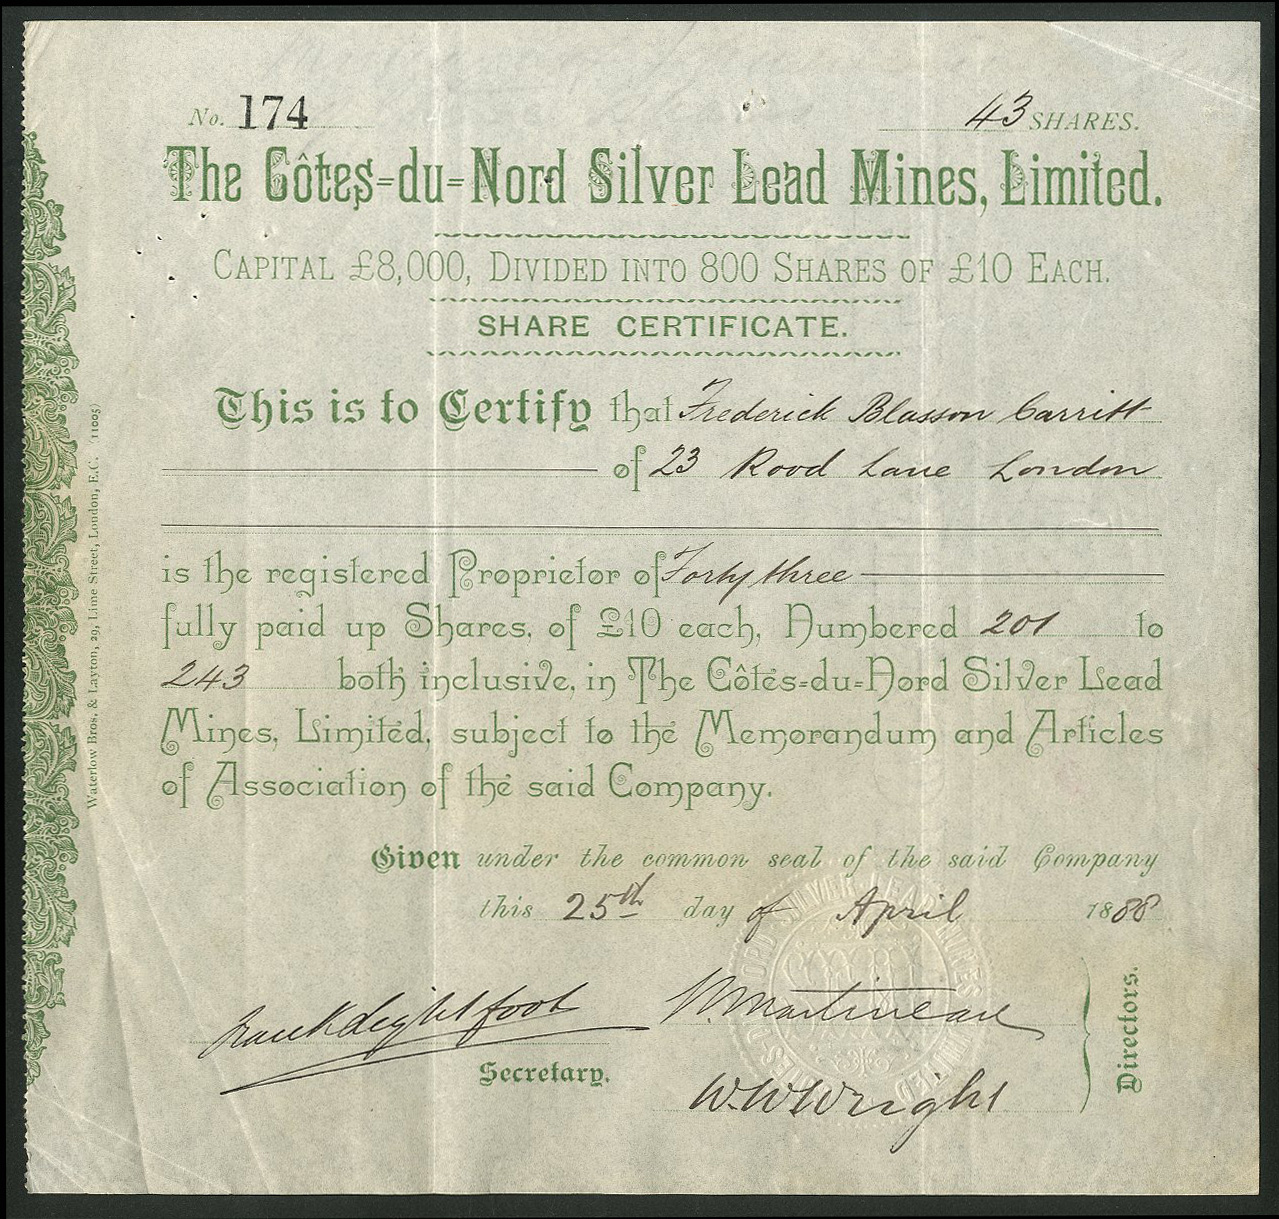 No. 174
43 SHARES.
The Côtes-du-Nord Silver Lead Mines, Limited.
CAPITAL £8,000, DIVIDED INTO 800 SHARES OF £10 EACH.
SHARE CERTIFICATE.
This is to Certify that Frederick Blasson Carritt
of 23 Rood Lane London
is the registered Proprietor of Forty three
fully paid up Shares, of £10 each, Numbered 201 to
243 both inclusive, in The Côtes-du-Nord Silver Lead
Mines, Limited, subject to the Memorandum and Articles
of Association of the said Company.
Given under the common seal of the said Company
this 25th day of April 1888
Frank Lightfoot
Secretary.
Martineau
W.W Wright
Directors.
Waterlow Bros. & Layton, 29, Lime Street, London, E.C. (11005)